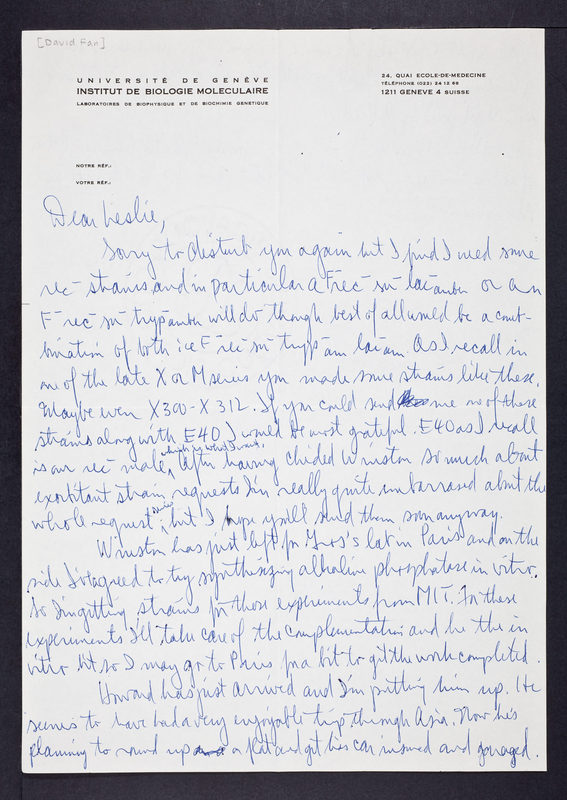 [David Fan]
UNIVERSITÉ DE GENÈVE
INSTITUT DE BIOLOGIE MOLECULAIRE
LABORATOIRES DE BIOPHYSIQUE ET DE BIOCHIMIE GENETIQUE
24, QUAI ECOLE-DE-MEDECINE
TÉLÉPHONE (022) 24 12 66
1211 GENEVE 4 SUISSE
NOTRE RÉF.:
VOTRE RÉF.:
Dear Leslie,
Sorry to disturb you again but I find I need some
rec⁻ strains and in particular a F⁻rec⁻su⁻lac⁻amber or an
F⁻rec⁻su⁻tryp⁻amber will do though best of all would be a comb-
bination of both i.e F⁻rec⁻su⁻tryp⁻am lac⁻am. As I recall in
one of the late X or M series you made some strains like these.
Maybe even X300-X312. If you could send me one of these
strains along with E40, I would be most grateful. E40 as I recall
is our rec⁻ male, which is what I want. After having chided Winston so much about
exorbitant strain requests I'm really quite embarrased about the
whole request; but I hope you'll send them soon anyway.
Winston has just left for Gros's lab in Paris and on the
side I've agreed to try synthesizing alkaline phosphatase in vitro.
So I'm getting strains for those experiments from MIT. In these
experiments I'll take care of the complementation and he the in
vitro bit so I may go to Paris for a bit to get the work completed.
Howard has just arrived and I'm putting him up. He
seems to have had a very enjoyable trip through Asia. Now he's
planning to round up a flat and get his car insured and garaged.